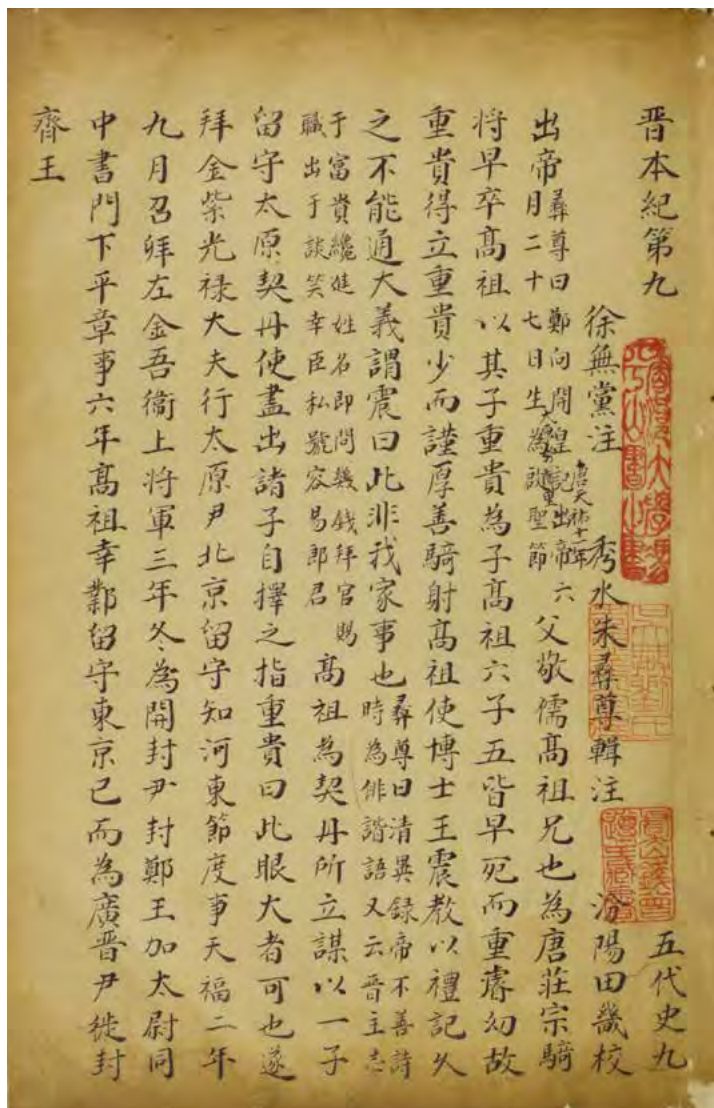 晋本紀第九 五代史九
徐無黨注 秀水朱彝尊輯注 汾陽田畿校
出帝 彝尊曰鄭向開皇記出帝六
唐天祐十一年
月二十七日生為啟聖節
父敬儒髙祖兄也為唐莊宗騎
将早卒髙祖以其子重貴為子髙祖六子五皆早死而重睿幼故
重貴得立重貴少而謹厚善騎射髙祖使博士王震教以禮記久
之不能通大義謂震曰此非我家事也 彝尊曰清異録帝不善詩
時為俳諧語又云晋主志
于富貴纔進姓名即問幾錢拜官賜
職出于談笑幸臣私號容易郎君
髙祖為契丹所立謀以一子
留守太原契丹使盡出諸子自擇之指重貴曰此眼大者可也遂
拜金紫光禄大夫行太原尹北京留守知河東節度事天福二年
九月召拜左金吾衛上将軍三年冬為開封尹封鄭王加太尉同
中書門下平章事六年髙祖幸鄴留守東京已而為廣晋尹徙封
齊王